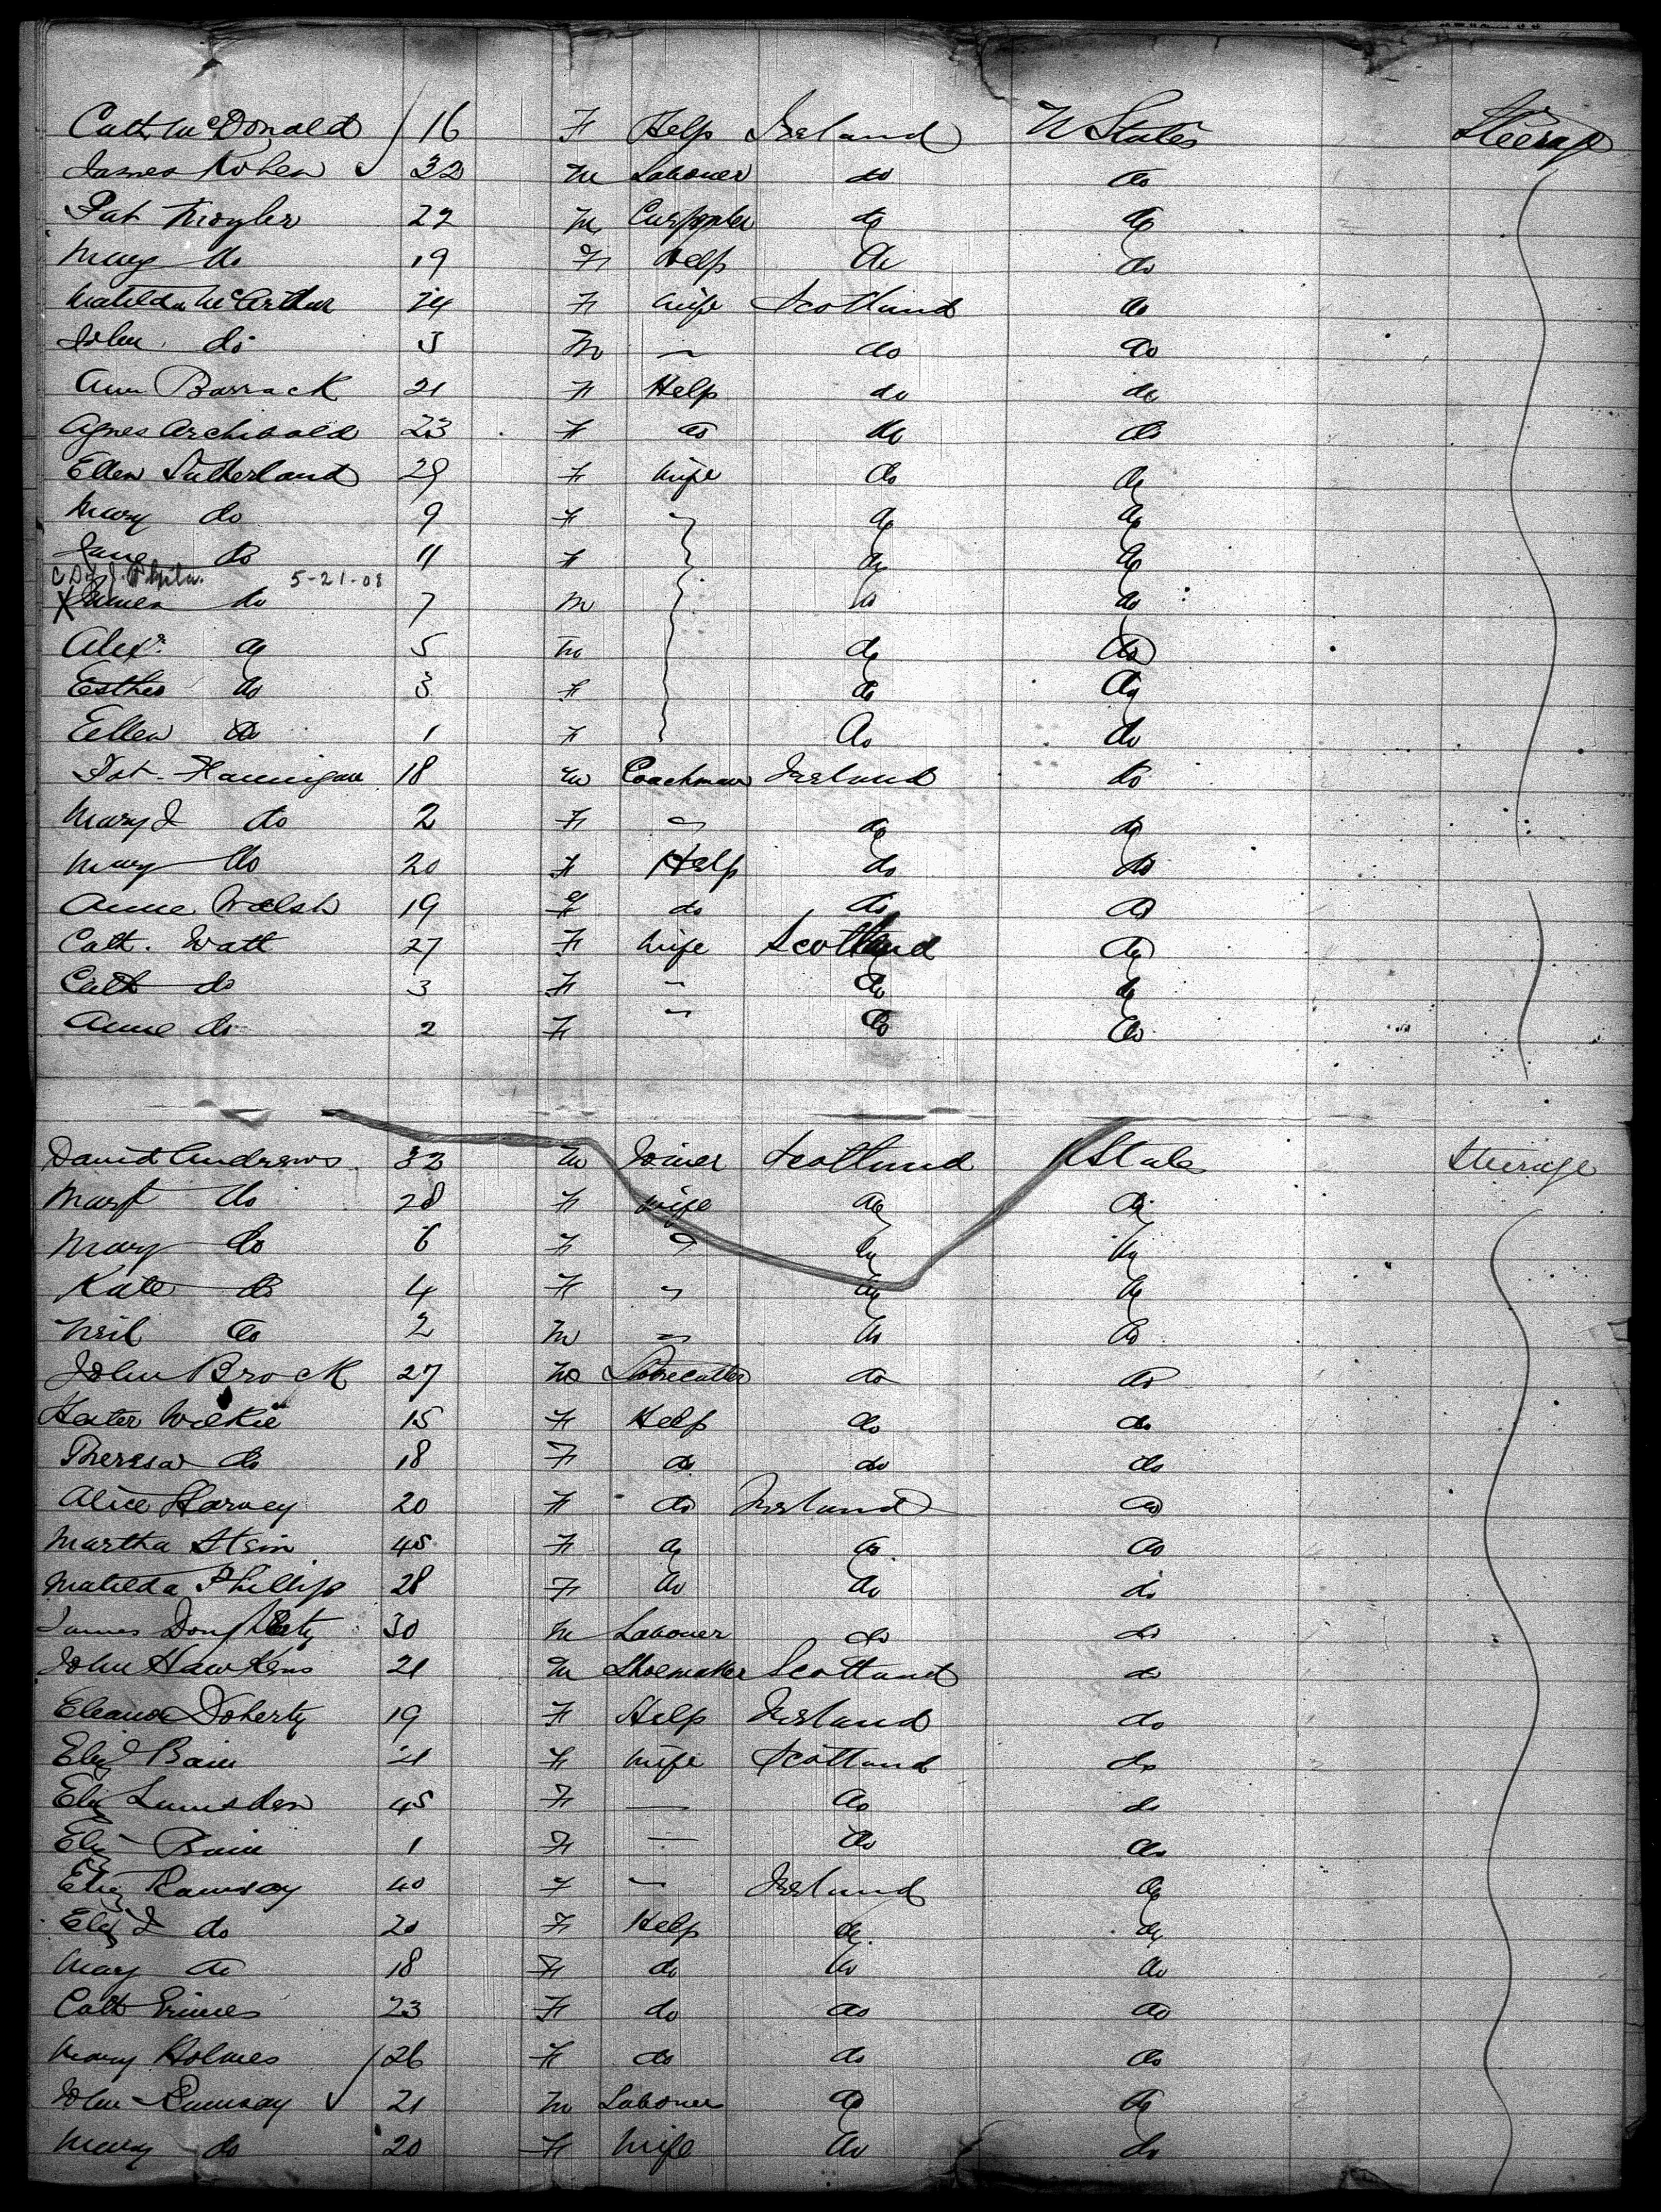 Cath McDonald / 16 F Help Ireland U States Steerage
James ✓ 32 M Labourer do do
Pat 22 M do do
Mary do 19 F Help do do
Matilda McArthur 24 F Wife Scotland do
John do 3 M — do do
Ann Barrack 21 F Help do do
Agnes Archibald 23 F do do do
Ellen Sutherland 29 F Wife do do
Mary do 9 F do do
Jane do 11 F do do
5-21-08
X James do 7 M do do
Alexr do 5 M do do
Esther do 3 F do do
Ellen do 1 F do do
Pat Hannigan 18 M Coachman Ireland do
Mary J do 2 F " do do
Mary do 20 F Help do do
Anne Walsh 19 F do do do
Cath. Watt 27 F Wife Scotland do
Cath do 3 F " do do
Anne do 2 F " do do
David Andrews 32 M Joiner Scotland U States Steerage
Mary do 28 F Wife do do
Mary do 6 F " do do
Kate do 4 F " do do
Neil do 2 M " do do
John Brock 27 M Stonecutter do do
Wilkie 15 F Help do do
Theresa do 18 F do do do
Alice Harvey 20 F do Ireland do
Martha Stein 45 F do do do
Matilda Phillips 28 F do do do
James Dougherty 30 M Labourer do do
John Hawkins 21 M Shoemaker Scotland do
Eleanor Doherty 19 F Help Ireland do
Eliz Bain 21 F Wife Scotland do
Eliz Lumsden 45 F — do do
Eliz Bain 1 F — do do
Eliz Ramsay 40 F — Ireland do
Eliz J do 20 F Help do do
Mary do 18 F do do do
Cath Grimes 23 F do do do
Mary Holmes / 26 F do do do
John Ramsay ✓ 21 M Labourer do do
Mary do 20 F Wife do do